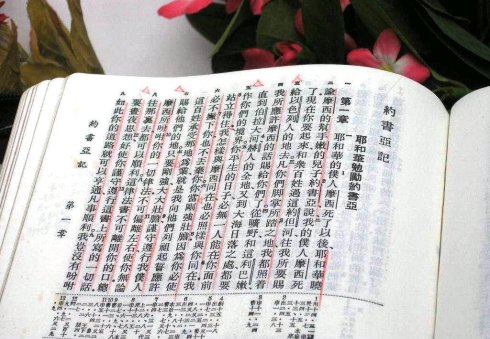 約書亞記
耶和華勉勵約書亞
第一章 耶和華的僕人摩西死了以後耶和華曉
諭摩西的幫手嫩的兒子約書亞說我的僕人摩西死
了現在你要起來和衆百姓過這約但河往我所要賜
給以色列人的地去凡你們脚掌所踏之地我都照着
我所應許摩西的話賜給你們了從曠野和這利巴嫩
直到伯拉大河赫人的全地又到大海日落之處都要
作你們的境界你平生的日子必無一人能在你面前
站立得住我怎樣與摩西同在也必照樣與你同在我
必不撇下你也不丟棄你你當剛強壯膽因爲你必使
這百姓承受那地爲業就是我向他們列祖起誓應許
賜給他們的地只要剛強大大壯膽謹守遵行我僕人
摩西所吩咐你的一切律法不可偏離左右使你無論
往那裏去都可以順利這律法書不可離開你的口總
要晝夜思想好使你謹守遵行這書上所寫的一切話
如此你的道路就可以亨通凡事順利我豈沒有吩咐
約書亞記 第一章